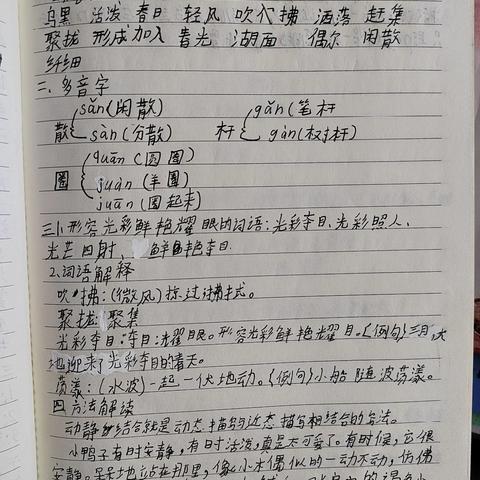 乌黑 活泼 春日 轻风 吹拂 洒落 赶集
聚拢 形成 加入 春光 湖面 偶尔 闲散
纤细
二、多音字
散 sǎn(闲散) sàn(分散) 杆 gǎn(笔杆 gān(杉杆)
圈 quān(圆圈) juàn(羊圈) juān(圈起来)
三、1、形容光彩鲜艳耀眼的词语:光彩夺目、光彩照人、
光芒四射、鲜艳夺目.
2、词语解释
吹拂:(微风)掠过;拂拭。
聚拢:聚集
光彩夺目:夺目:光耀眼。形容光彩鲜艳耀目。《例句》三月,大
地迎来了光彩夺目的春天。
荡漾:(水波)一起一伏地动。《例句》小船随波荡漾。
四方法解读
动静结合就是动态描写与静态描写相结合的写法。
小鸭子有时安静,有时活泼,真是太可爱了。有时候,它很
安静。呆呆地站在那里,像小木偶似的一动不动,仿佛